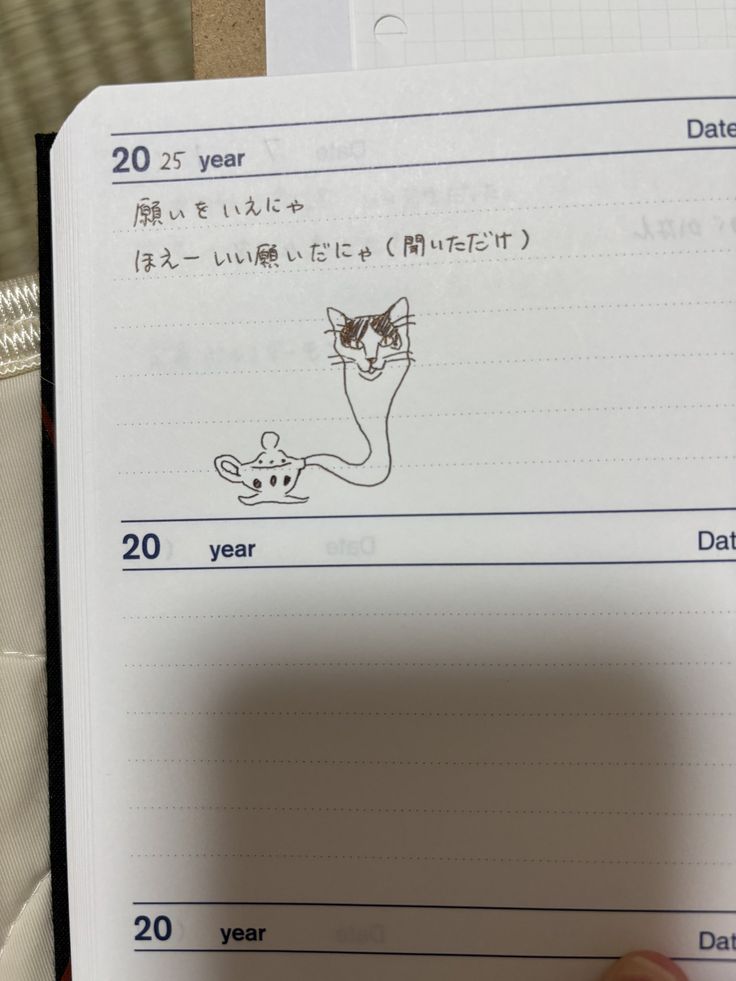 Date
20 25 year
願いをいえにゃ
ほえー いい願いだにゃ(聞いただけ)
20 year Dat
20 year Dat